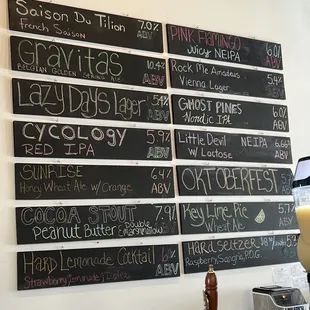 Saison Du Tilion 7.0%
French Saison ABV
Gravitas 10.4%
Belgian Golden Strong Ale ABV
Lazy Days Lager 5.4%
ABV
CYCOLOGY 5.9%
RED IPA ABV
SUNRISE 6.4%
Honey Wheat Ale w/ Orange ABV
COCOA STOUT 7.9%
Peanut Butter Double & Marshmallow ABV
HARD LEMONADE COCKTAIL
Strawberry Lemonade ABV
PINK FLAMINGO 6.0%
Juicy NEIPA ABV
Rock Me Amadeus 5.4%
Vienna Lager ABV
GHOST PINES 6.0%
Nordic IPL ABV
Little Devil NEIPA 6.66%
w/ Lactose ABV
OKTOBERFEST
ABV
Key Lime Pie 5.7%
Wheat Ale ABV
HARD SELTZER
Raspberry, Sangria, P.O.G.